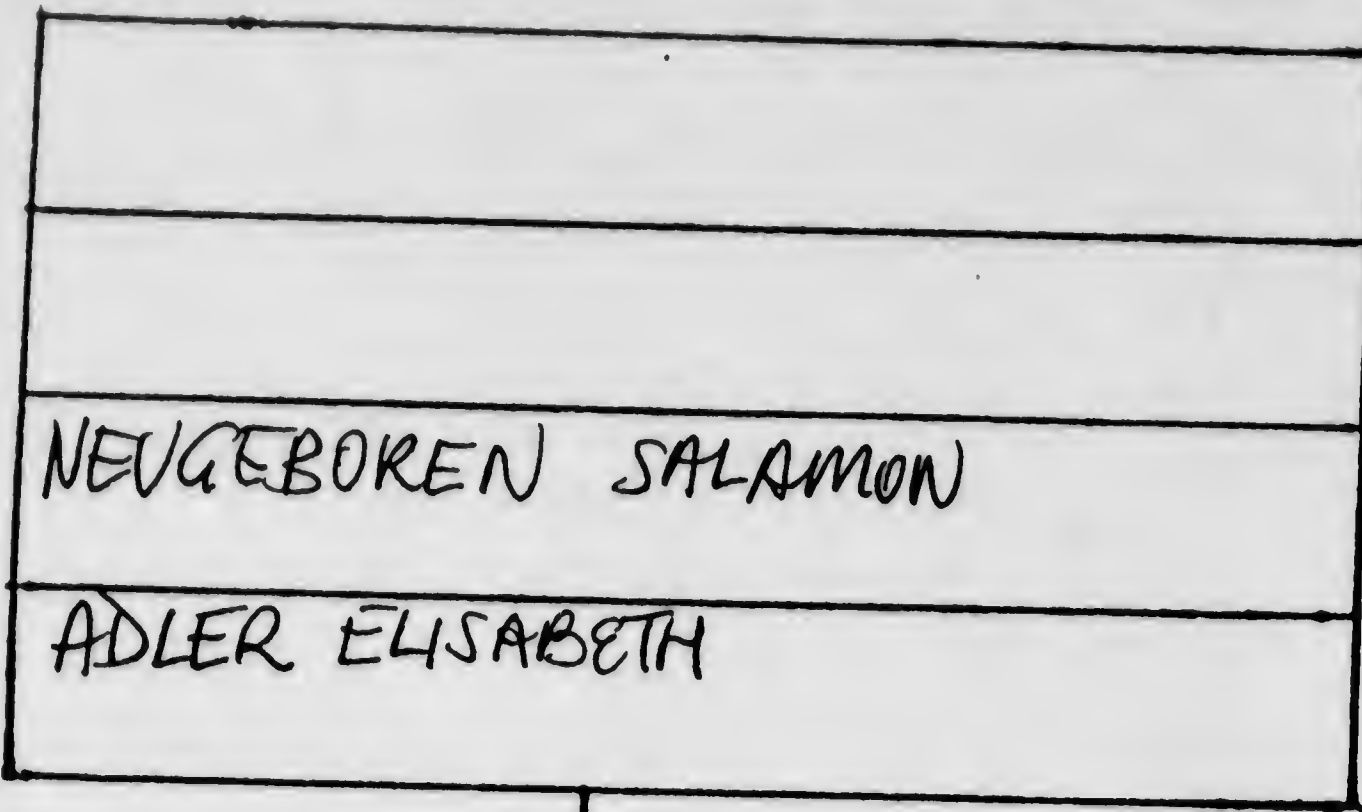 NEUGEBOREN SALAMON
ADLER ELISABETH